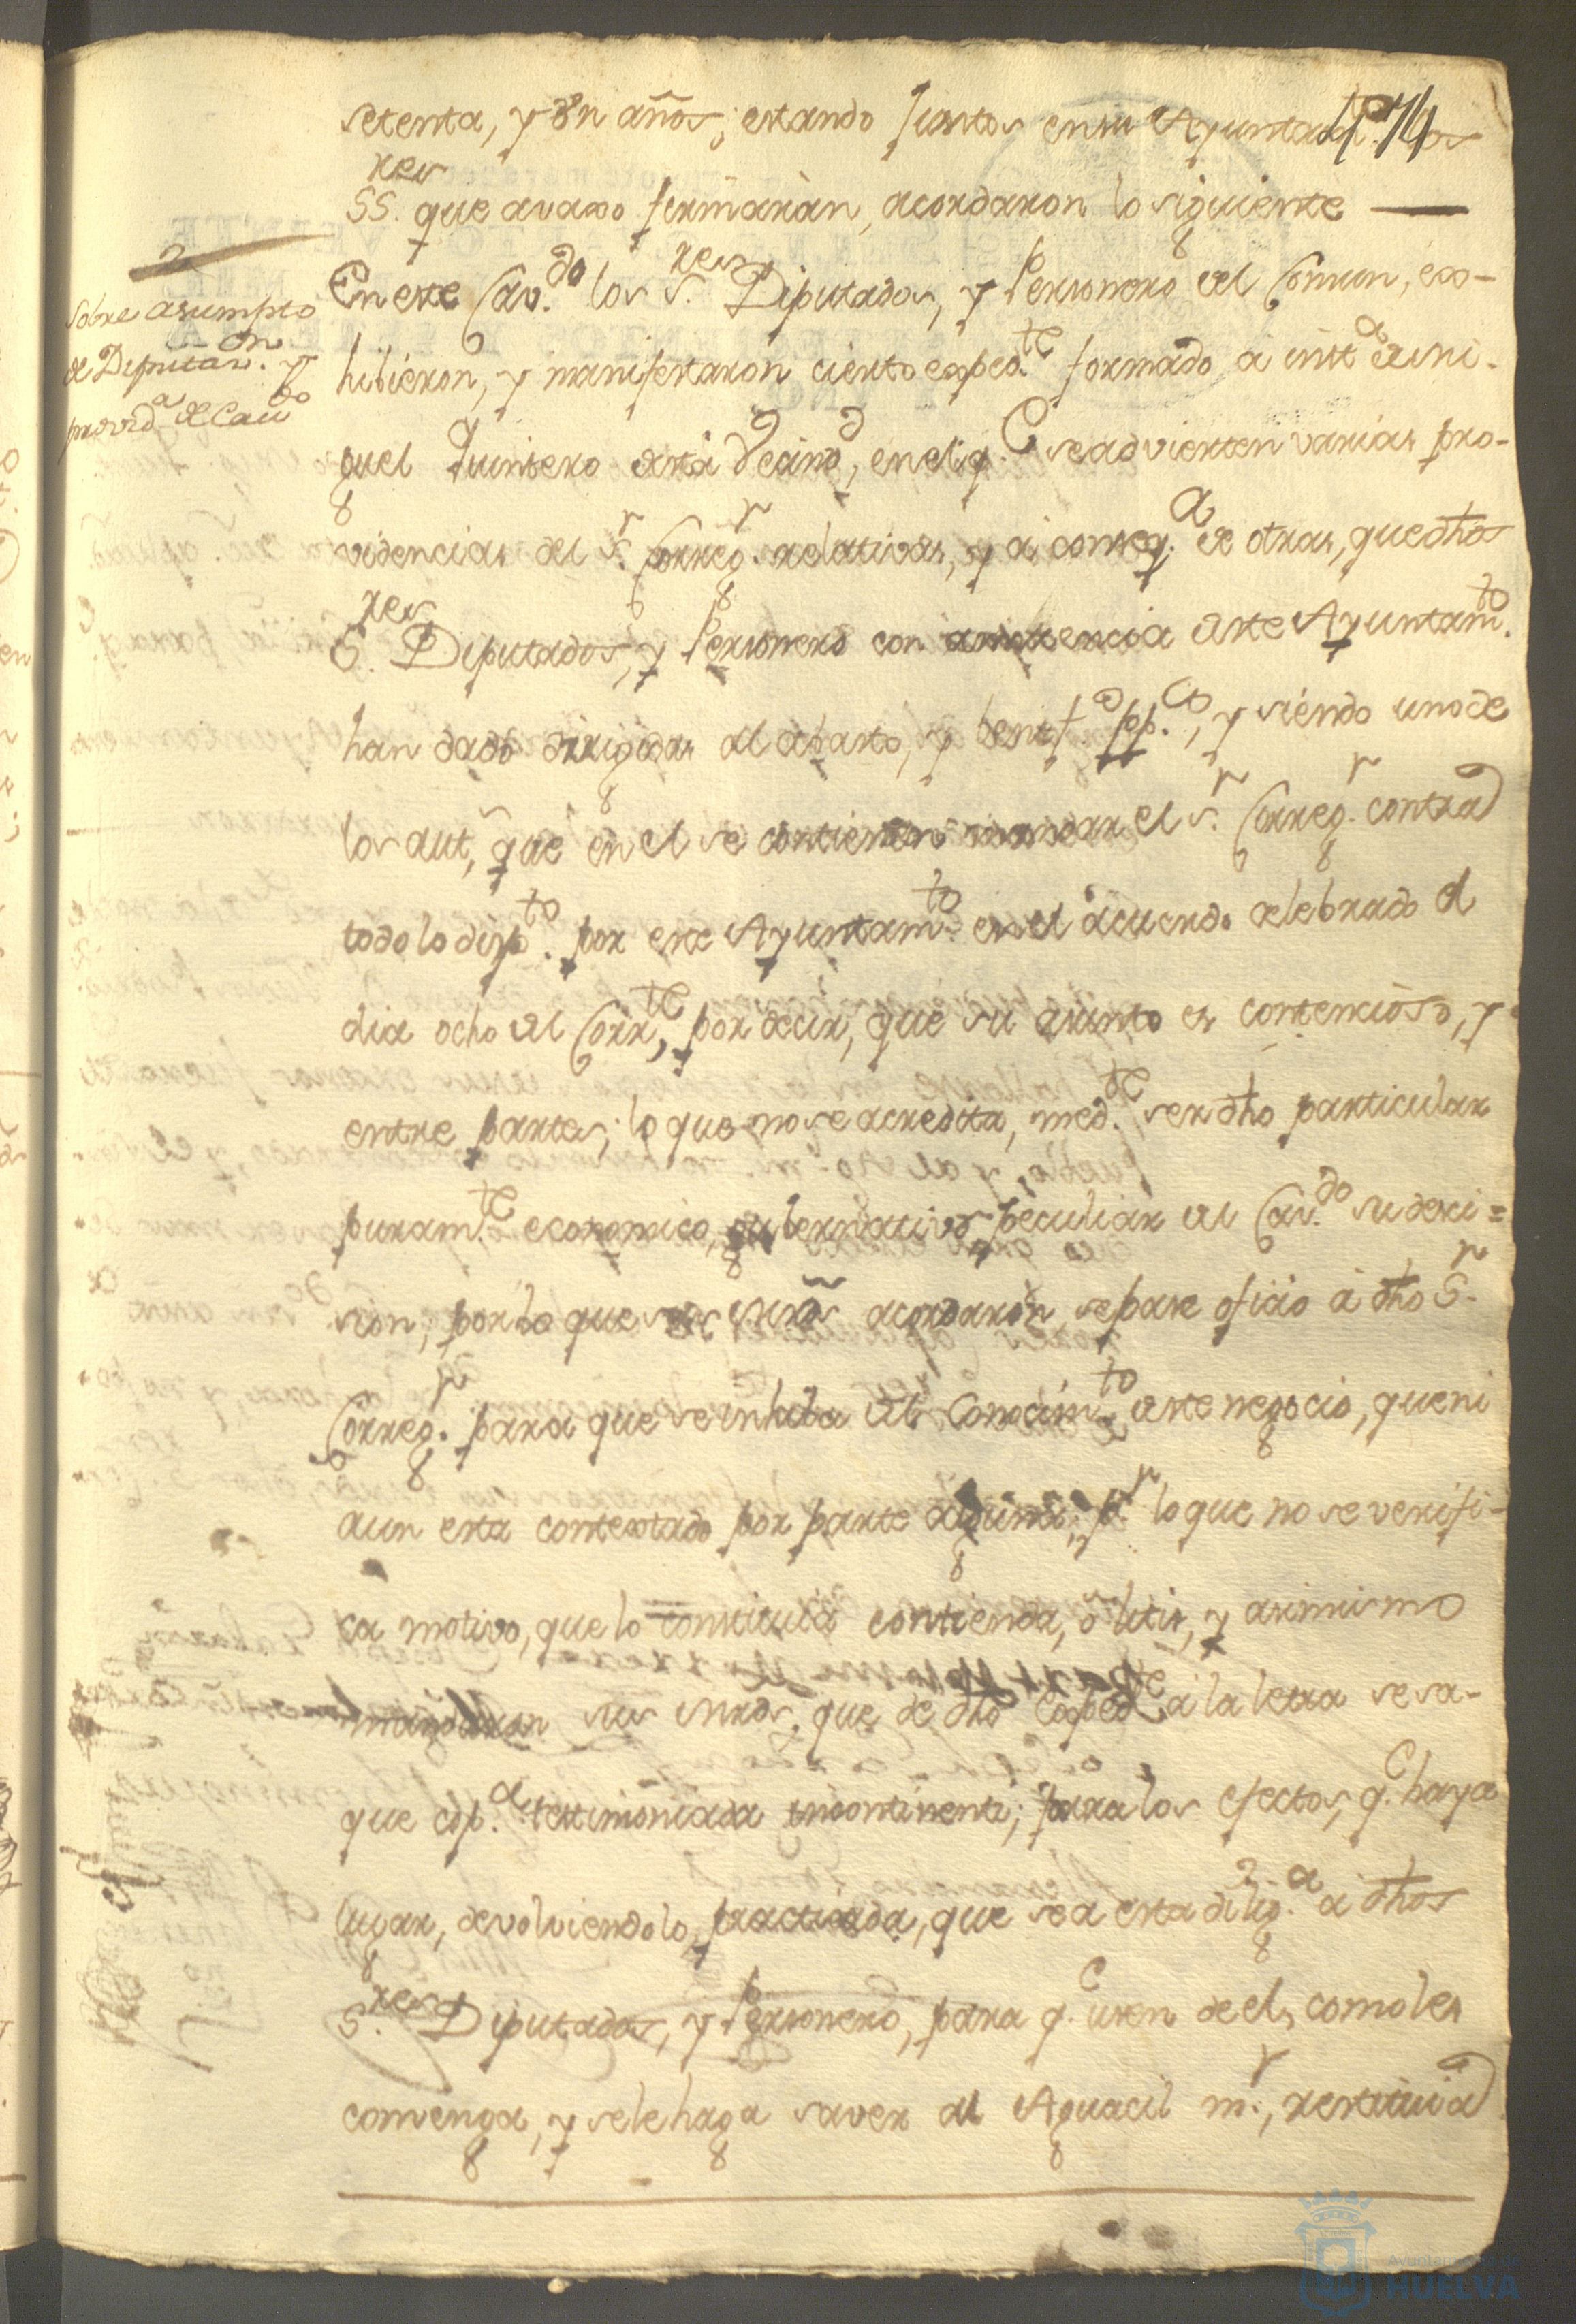 setenta, y un años; estando juntos en su Ayuntam.to los
SS.res que avaxo firmaràn, acordaron lo siguiente —
2
Sobre asumpto
de Diputaz.on y
provid.a de Cau.do
En este Cav.do los S.res Diputados, y Personero del Comun, exo-
hibieron, y manifestaron cierto exped.te formado à inst.a de Mi-
guel Quintero desta Vecind.d, en el q.e se advierten varias pro-
videncias del S.r Correg.r relativas, y à conseq.a de otras, que dhos
S.res Diputados, y Personero con asistencia deste Ayuntam.to
han dado dirigidas al abasto, y benef.o pp.co, y siendo uno de
los aut.s que en el se contienen mandar el S.r Correg.r contra
todo lo disp.to por este Ayuntam.to en el acuerdo celebrado el
dia ocho del Corr.te, por decir, que su asunto es contencioso, y
entre partes; lo que no se acredita, med.te ser dho particular
puram.te economico, gubernativo peculiar del Cav.do su deci=
sion, por lo que sus mrds acordaron, se pase oficio à dho S.r
Correg.r para que se inhiba del Conocim.to deste negocio, que ni
aun esta contextado por parte alguna; p.r lo que no se verifi-
ca motivo, que lo constituia contienda, ò litis, y asimismo
mandaron sus mrds. que de dho Exped.te à la letra se sa-
que cop.a testimoniada incontinenti; para los efectos, q.e haya
lugar, devolviendolo, practicada, que sea esta dilig.a a dhos
S.res Diputados, y Personero, para q.e usen de el, como les
convenga, y se le haga saver al Aguacil m.r, restituia
Ayuntamiento de
HUELVA